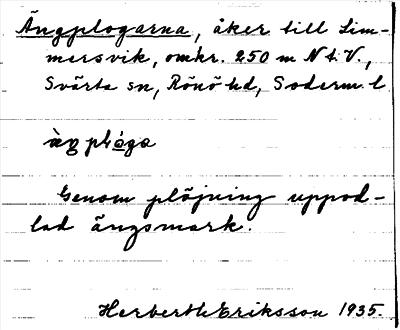 Ängplogarna, åker till Sim-
marsvik, omkr. 250 m N t. V.,
Svärta sn, Rönö hd, Söderm. l.
Genom plöjning uppod-
lad ängsmark.
Herberth Eriksson 1935.